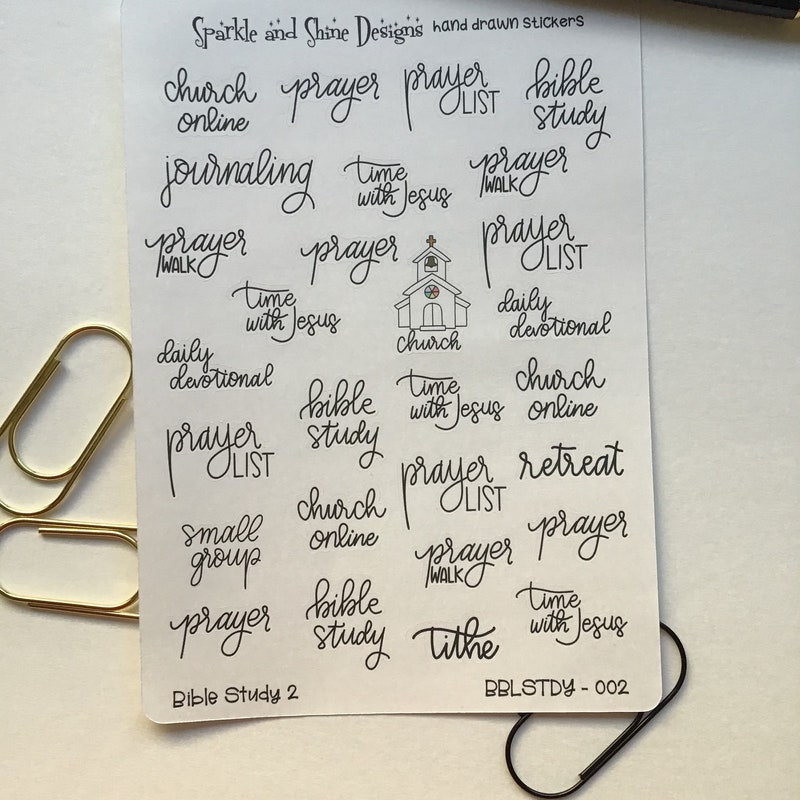 Sparkle and Shine Designs hand drawn stickers
church
online
prayer
prayer
LIST
bible
study
journaling
time
with Jesus
prayer
WALK
prayer
WALK
prayer
church
prayer
LIST
time
with Jesus
daily
devotional
daily
devotional
bible
study
time
with Jesus
church
online
prayer
LIST
prayer
LIST
retreat
small
group
church
online
prayer
WALK
prayer
prayer
bible
study
tithe
time
with Jesus
Bible Study 2
BBLSTDY - 002